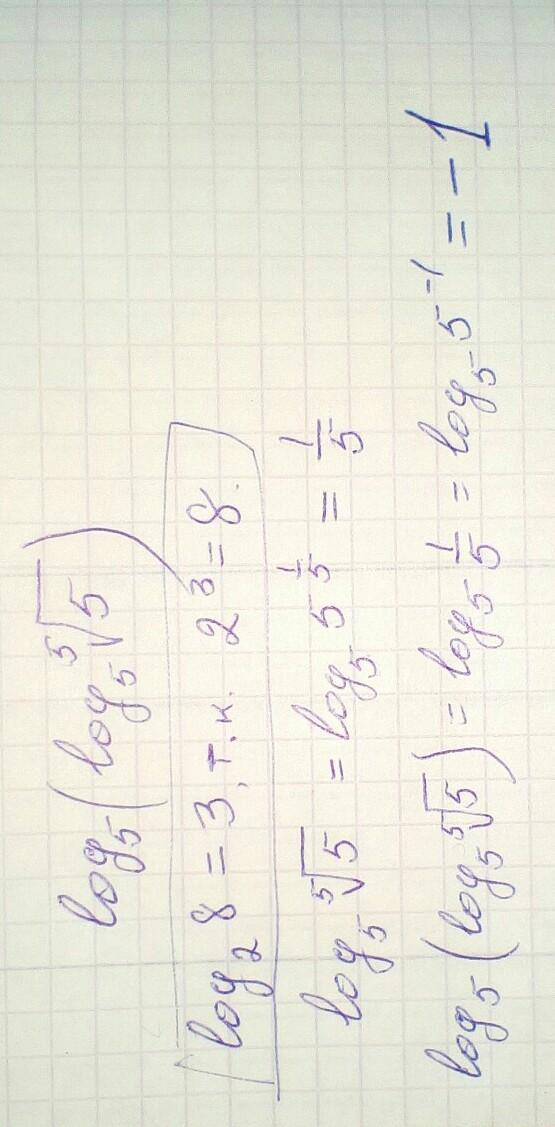 log₅(log₅ ⁵√5)
log₂8 = 3, т.к. 2³ = 8.
log₅ ⁵√5 = log₅ 5^(1/5) = 1/5
log₅(log₅ ⁵√5) = log₅ 1/5 = log₅ 5⁻¹ = -1